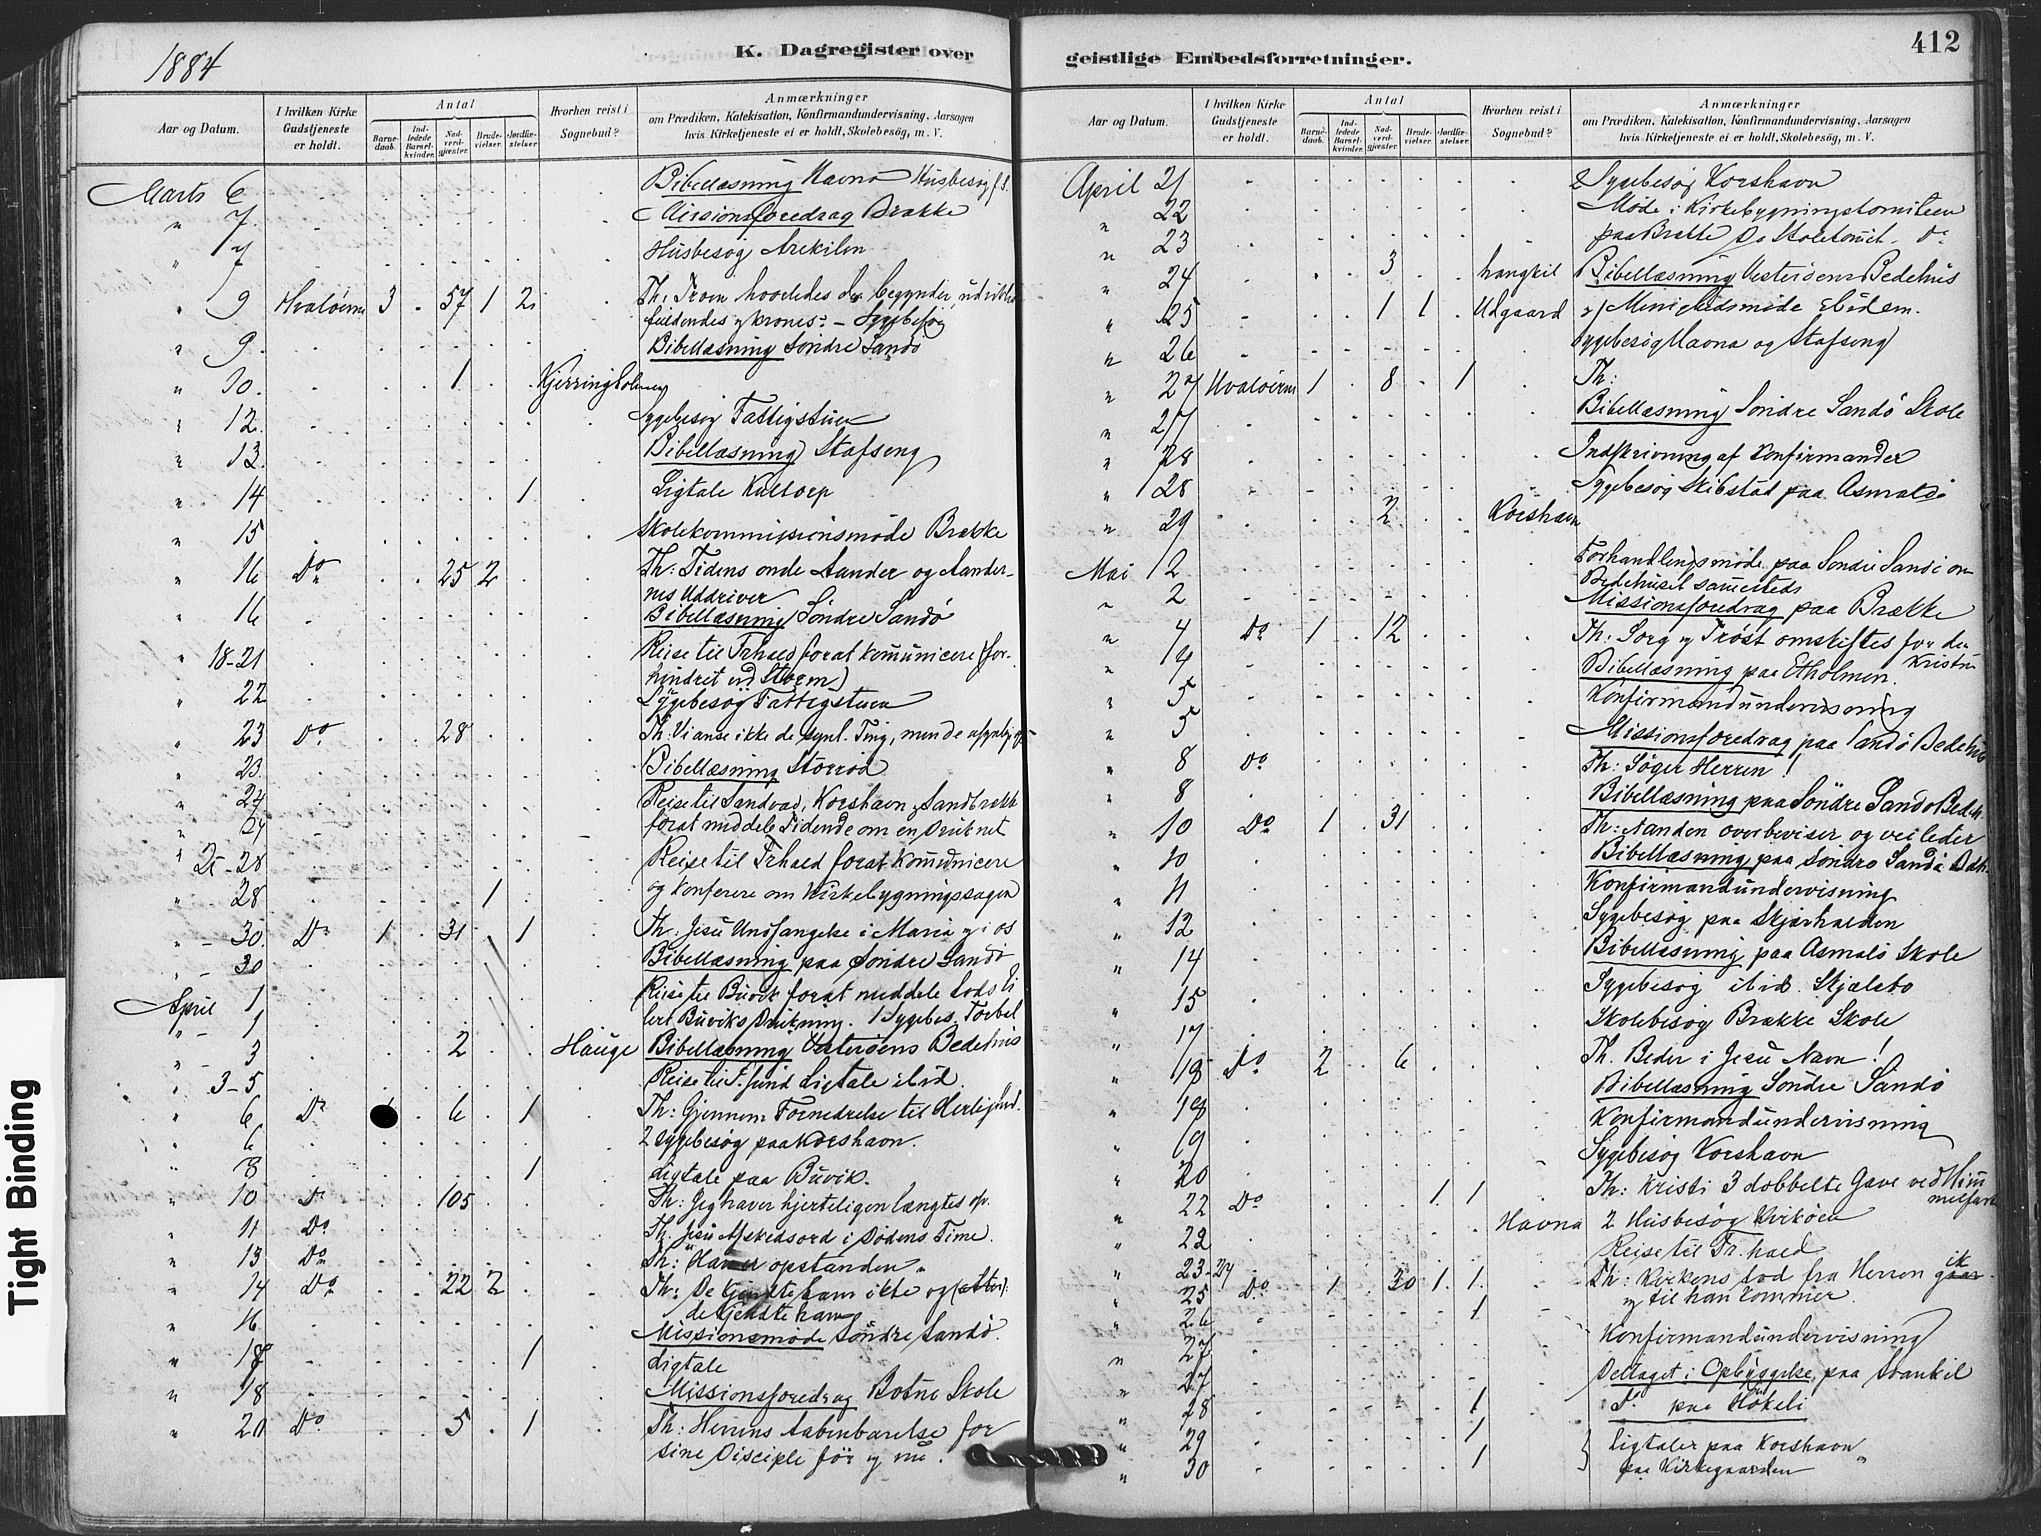 1884
K. Dagregister over
Aar og Datum.
I hvilken Kirke Gudstjeneste er holdt.
Antal
Barnedaab.
Indledede Barselkvinder.
Nadverdgjæster.
Brudevielser.
Jordfæstelser.
Hvorhen reist i Sognebud?
Anmærkninger
om Prædiken, Katekisation, Konfirmandundervisning, Aarsagen
hvis Kirketjeneste ei er holdt, Skolebesøg, m. V.
Marts 6 Bibellæsning Havna Husbesøg
" 7 Missionsforedrag Brække
" 7 Husbesøg Arekilen
" 9 Hvaløerne 3 57 1 2 Th: Troen hvorledes den begynder, udvikles
fuldendes og krones - Sygebesøg
" 9 Bibellæsning Söndre Sandö
" 10 1 Kjerringholmen
" 12 Sygebesög Fattigstuen
" 13 Bibellæsning Stafseng
" 14 1 Ligtale Kultorp
" 15 Skolekommissionsmöde Brække
" 16 Do 25 2 Th: Tidens onde Aander og Aander-
nes Uddriver
" 16 Bibellæsning Söndre Sandö
" 18-21 Reise til Frhald forat komunicere (for-
hindret ved Storm)
" 22 Sygebesög Fattigstuen
" 23 Do 28 Th: Vi anse ikke de synl. Ting, men de usynlige
" 23 Bibellæsning Storröd
" 24 Reise til Sandvad, Korshavn og Sandbrække
" 24 forat meddele Tidende om en Druknet
" 25-28 Reise til Frhald forat komunicere
" 28 1 og konferere om Kirkebygningssagen
" - 30 Do 1 31 1 Th: Jesu Undfangelse i Maria og i os
" - 30 Bibellæsning paa Söndre Sandö
April 1 Reise til Buvik forat meddele Lods
" - 1 Buviks Drukning. 1 Sygebes.
" - 3 2 Hauge Bibellæsning Vesteröens Bedehus
" 3-5 Reise til F.sund Ligtale ibid.
" 6 Do 6 1 Th: Gjennem Fornedrelse til Herlighed.
" 6 2 Sygebesög paa Korshavn.
" 8 1 Ligtale paa Buvik.
" 10 Do 105 Th: Jeg haver hjerteligen længtes
" 11 Do Th. Jesu Afskedsord i Dödens Time.
" 13 Do Th: "Han er opstanden"
" 14 Do 22 2 Th: De Gjendte ham ikke og
de Gjendte ham
" 16 Missionsmöde Söndre Sandö.
" 18 1 Ligtale
" 18 Missionsforedrag Botne Skole
" 20 Do 5 1 Th: Herrens Aabenbarelse for
sine Disciple för og nu.
412
geistlige Embedsforretninger.
Aar og Datum.
I hvilken Kirke Gudstjeneste er holdt.
Antal
Barnedaab.
Indledede Barselkvinder.
Nadverdgjæster.
Brudevielser.
Jordfæstelser.
Hvorhen reist i Sognebud?
Anmærkninger
om Prædiken, Katekisation, Konfirmandundervisning, Aarsagen
hvis Kirketjeneste ei er holdt, Skolebesög, m. V.
April 21 2 Sygebesög Korshavn
" 22 Möde i Kirkebygningskomiteen
" 23 paa Brække Do Skolekomit. Do
" 24 3 Langkil Bibellæsning Vesteröens Bedehus
" 25 1 1 Udgaard Menighedsmöde ibidem.
" 26 Sygebesög Havna og Stafseng
" 27 Hvaløerne 1 8 1 Th:
" 27 Bibellæsning Söndre Sandö Skole
" 28 Indskrivning af Konfirmander
" 28 Sygebesög Skibstad paa Asmalö
" 29 2 Korshavn
Mai 2 Forhandlingsmöde paa Söndre Sandö om
Bedehuset sammesteds
" 2 Missionsforedrag paa Brække
" 4 Do 1 12 Th: Sorg og Tröst omskiftes for den
Kristne
" 4 Bibellæsning paa Etholmen.
" 5 Konfirmandundervisning
" 5 Missionsforedrag paa Sandö Bedehus
" 8 Do Th: Söger Herren!
" 8 Bibellæsning paa Söndre Sandö Bedeh.
" 10 Do 1 31 Th: Aanden overbeviser og veileder
" 10 Bibellæsning paa Söndre Sandö Bdh.
" 11 Konfirmandundervisning
" 12 Sygebesög paa Skjærhalden
" 14 Bibellæsning paa Asmalö Skole
" 15 Sygebesög ibid. Skjælsbo
" 17 Skolebesög Brække Skole
" 18 Do 2 6 Th. Beder i Jesu Navn!
" 18 Bibellæsning Söndre Sandö
" 19 Konfirmandundervisning
" 20 Sygebesög Korshavn
" 22 Do 1 1 Th: Kristi 3 dobbelte Gave ved Him
melfart
" 22 Havna 2 Husbesög Kirköen
" 23-24 Reise til Fr.hald
" 25 Do 1 30 1 1 Th: Kirkens Lod fra Herren gik
og til han kommer.
" 26 1
" 27 Konfirmandundervisning
" 27 Deltaget i Opbyggelse paa
" 28 1 Do paa Hökeli
" 29 1 Ligtaler paa Korshavn
" 30 1 paa Kirkegaarden
Tight Binding